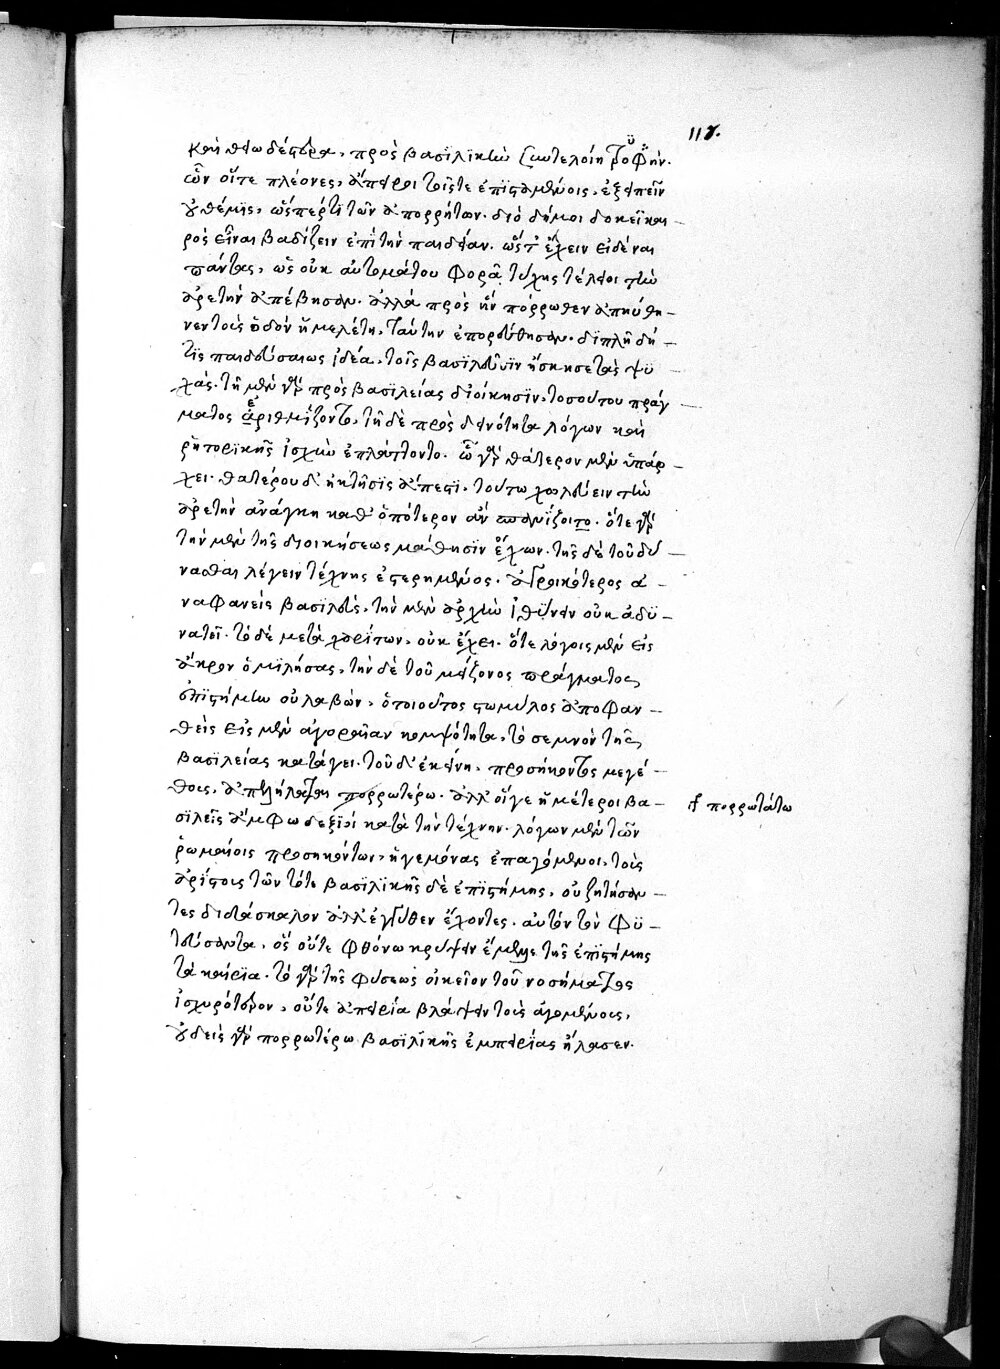 118.
καὶ θειωδέστερα, πρὸς βασιλικὴν συντελοίη τρυφήν.
ὧν οἵτε πλέονες, ἄπειροι τοῖς τε ἐπισταμένοις, ἐξειπεῖν
οὐ θέμις, ὥσπέρ τι τῶν ἀπορρήτων. διὸ δή μοι δοκεῖ και
ρὸς εἶναι βαδίζειν ἐπὶ τὴν παιδείαν. ὥστ' ἔχειν εἰδέναι
πάντας, ὡς οὐκ αὐτομάτου φορᾷ τύχης τέλειοι τὴν
ἀρετὴν ἀπέβησαν. ἀλλὰ πρὸς ἣν πόρρωθεν ἀπηύθυ
νεν τοῖς ὁδὸν ἡ μελέτη, ταύτην ἐπορεύθησαν. διπλῆ δή
τις παιδεύσεως ἰδέα, τοῖς βασιλεῦσιν ἤσκησε τὰς ψυ
χάς. τῇ μὲν γὰρ πρὸς βασιλείας διοίκησιν, τοσούτου πράγ
ματος ἐρηθμίζοντο, τῇ δὲ πρὸς δεινότητα λόγων καὶ
ῥητορικῆς ἰσχὺν ἐπλάττοντο. ᾧ γὰρ θάτερον μὲν ὑπάρ
χει. θατέρου δ' ἡ κτῆσις ἄπεστι, τούτω χωλεύειν τὴν
ἀρετὴν ἀνάγκη καθ' ὁπότερον ἂν σπανίζοιτο. ὅτε γὰρ
τὴν μὲν τῆς διοικήσεως μάθησιν ἔχων. τῆς δὲ τοῦ δύ
νασθαι λέγειν τέχνης ἐστερημένος. ἀγροικότερος ἀ
ναφανεὶς βασιλεὺς, τὴν μὲν ἀρχὴν ἰθύνειν οὐκ ἀδυ
νατεῖ. τὸ δὲ μετὰ χαρίτων, οὐκ ἔχει. ὅτε λόγοις μὲν εἰς
ἄκρον ὁμιλήσας, τὴν δὲ τοῦ μείζονος πράγματος
ἐπιστήμην οὐ λαβών, ὁ τοιοῦτος στωμύλος ἀποφαν
θεὶς εἰς μὲν ἀγοραίαν κομψότητα, τὸ σεμνὸν τῆς
βασιλείας κατάγει. τοῦ δ' ἐκείνη, προσήκοντος μεγέ
θους, ἀπελήλαται πορρωτέρω. ἀλλ' οἵγε ἡμέτεροι βα
σιλεῖς ἄμφω δεξιοὶ κατὰ τὴν τέχνην. λόγων μὲν τῶν
ῥωμαίοις προσηκόντων, ἡγεμόνας ἐπαγόμενοι, τοὺς
ἀρίστους τῶν τότε βασιλικῆς δὲ ἐπιστήμης, οὐ ζητήσαν
τες διδάσκαλον ἀλλ' ἐγγύθεν ἔχοντες. αὐτὸν τὸν φυ
τεύσαντα. ὃς οὔτε φθόνω κρύψειν ἔμελλε τῆς ἐπιστήμης
τὰ καίρια. τὸ γὰρ τῆς φύσεως οἰκεῖον τοῦ νοσήματος
ἰσχυρότερον, οὔτε ἀπειρία βλάψειν τοὺς ἀγομένους,
οὐδεὶς γὰρ πορρωτέρω βασιλικῆς ἐμπειρίας ἤλασεν.
πορρωτάτω